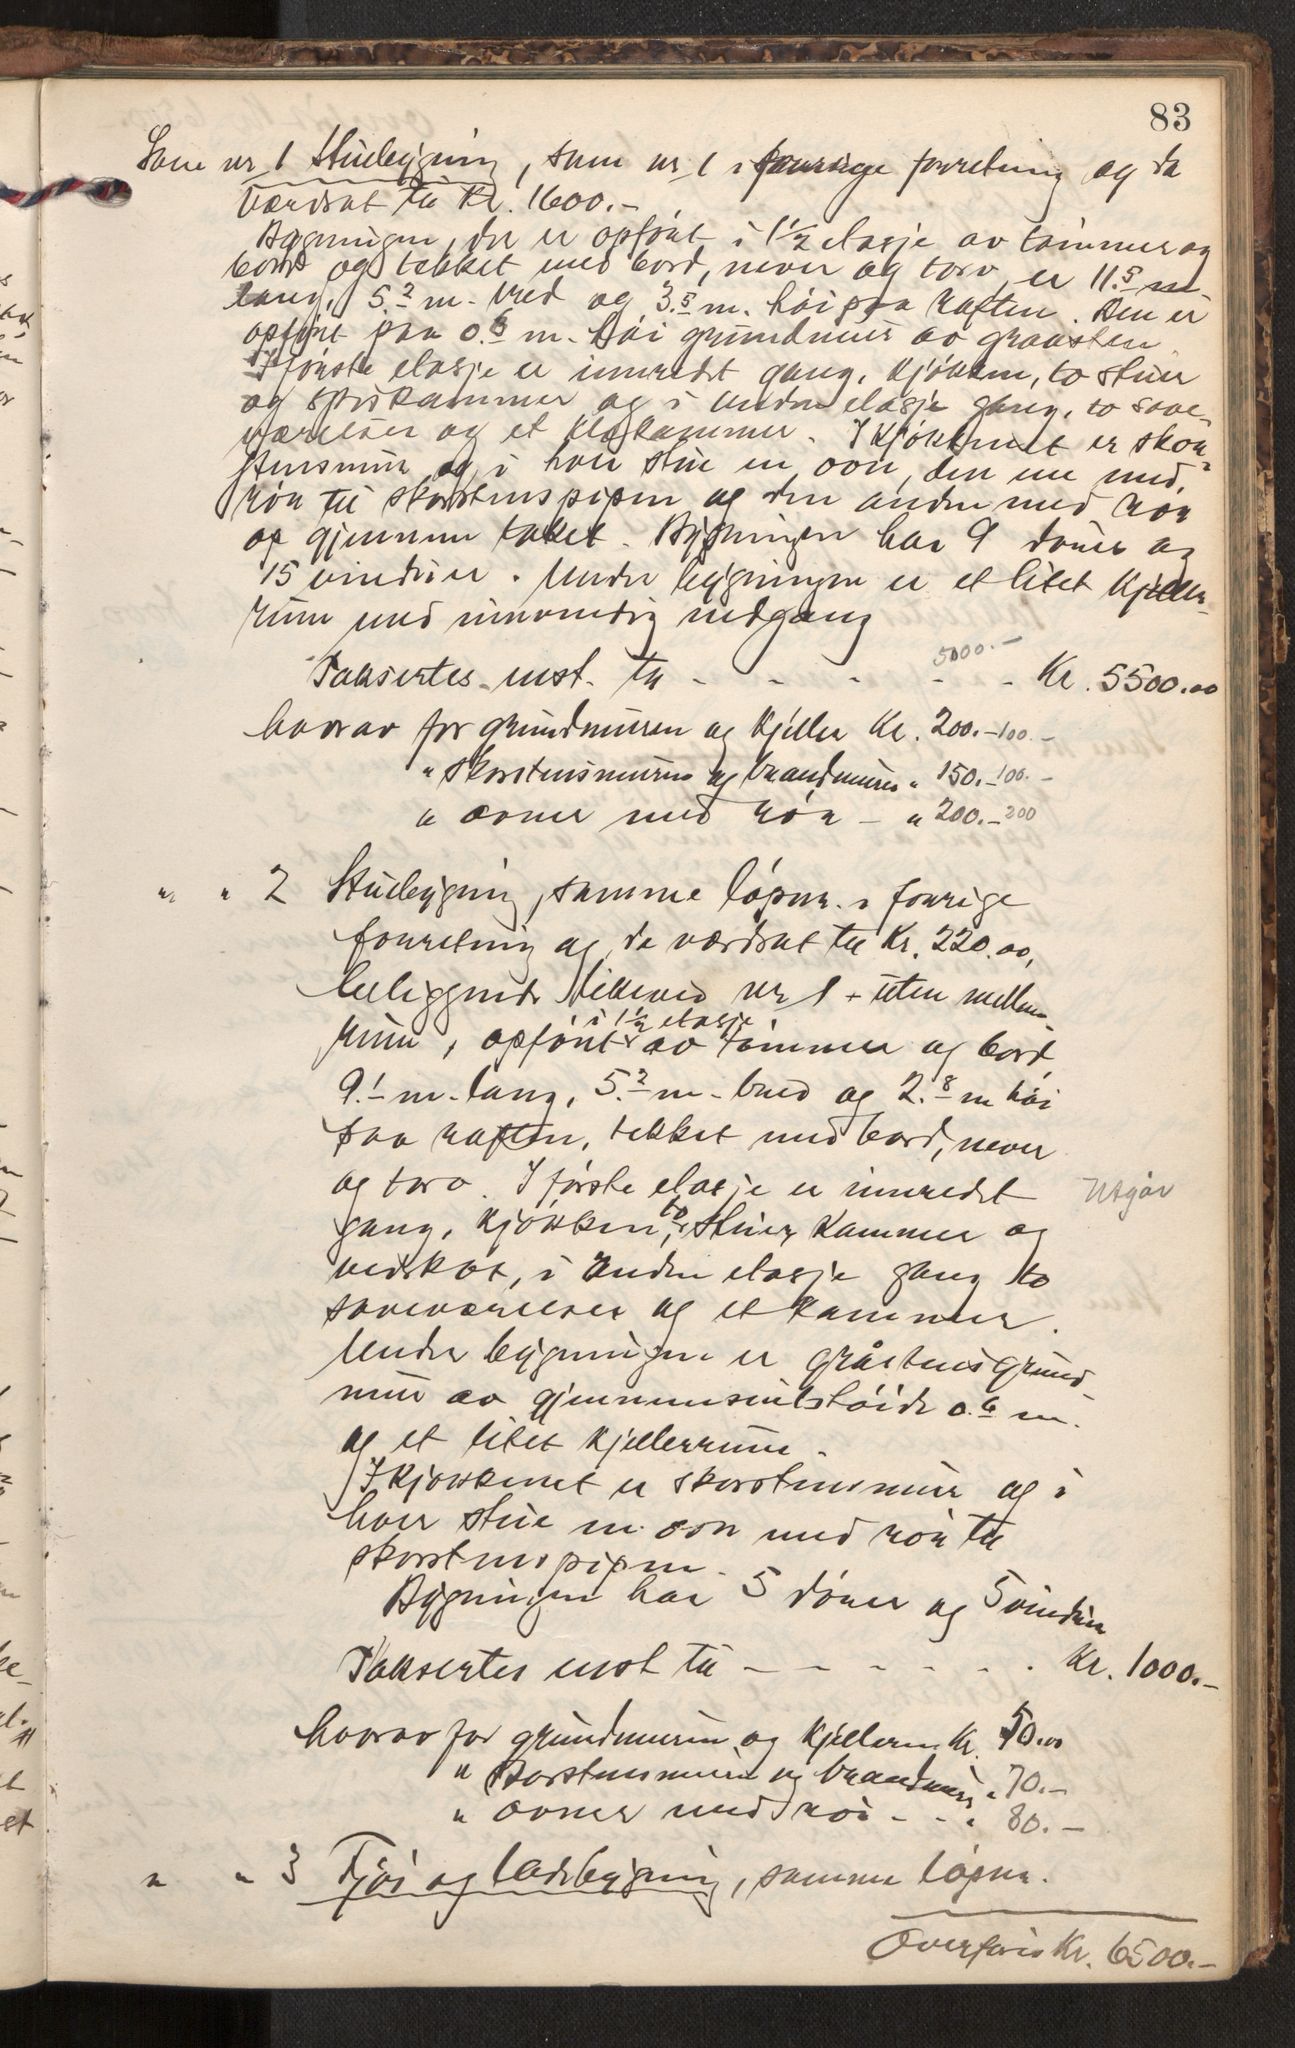 83
Som nr 1 Stuebygning, som nr 1 i forrige forretning og da
værdsat til Kr. 1600.-
Bygningen, der er opført i 1½ etasje av tømmer og
bord og tekket med bord, never og torv, er 11.5 m
lang, 5.2 m. bred og 3.5 m. høi paa raften. Den er
opført paa 0.6 m. høi grundmur av graasten.
I første etasje er innredet gang, kjøkken, to stuer
og spiskammer og i anden etasje gang, to sove-
værelser og et klækammer. I kjøkkenet er skor-
stensmur og i hver stue en ovn, den ene med
rør til skorstenspipen og den anden med rør
op gjennem taket. Bygningen har 9 dører og
15 vinduer. Under bygningen er et litet kjeller-
rum med innvendig nedgang
5000.-
Taksertes enst. til - - - - - Kr. 5500.00
hvorav for grundmuren og kjeller Kr. 200.- 100.-
" skorstensmuren og brandmurer " 150.- 100.-
" ovner med rør - " 200.- 200
" " 2 Stuebygning, samme løpnr. i forrige
forretning og da værdsat til Kr. 220.00,
beliggende likeved nr 1 - uten mellem-
i 1½ etasje
rum, opført av tømmer og bord,
9.1 m. lang, 5.2 m. bred og 2.8 m høi
paa raften, tekket med bord, never
og torv. I første etasje er innredet
Utgår
to
gang, kjøkken, stuer, kammer og
vedskot, i anden etasje gang to
soveværelser og et kammer.
Under bygningen er gråstensgrund-
mur av gjennemsnitshøide 0.6 m.
og et litet kjellerrum.
I kjøkkenet er skorstensmur og i
hver stue en ovn med rør til
skorstenspipen.
Bygningen har 5 dører og 5 vinduer
Taksertes enst til - - - - - - Kr. 1000.-
hvorav for grundmuren og kjelleren Kr. 50.00
" skorstensmuren og brandmur " 70.-
" ovner med rør - - " 80.-
" " 3 Fjøs og ladebygning, samme løpnr.
Overføres Kr. 6500.-